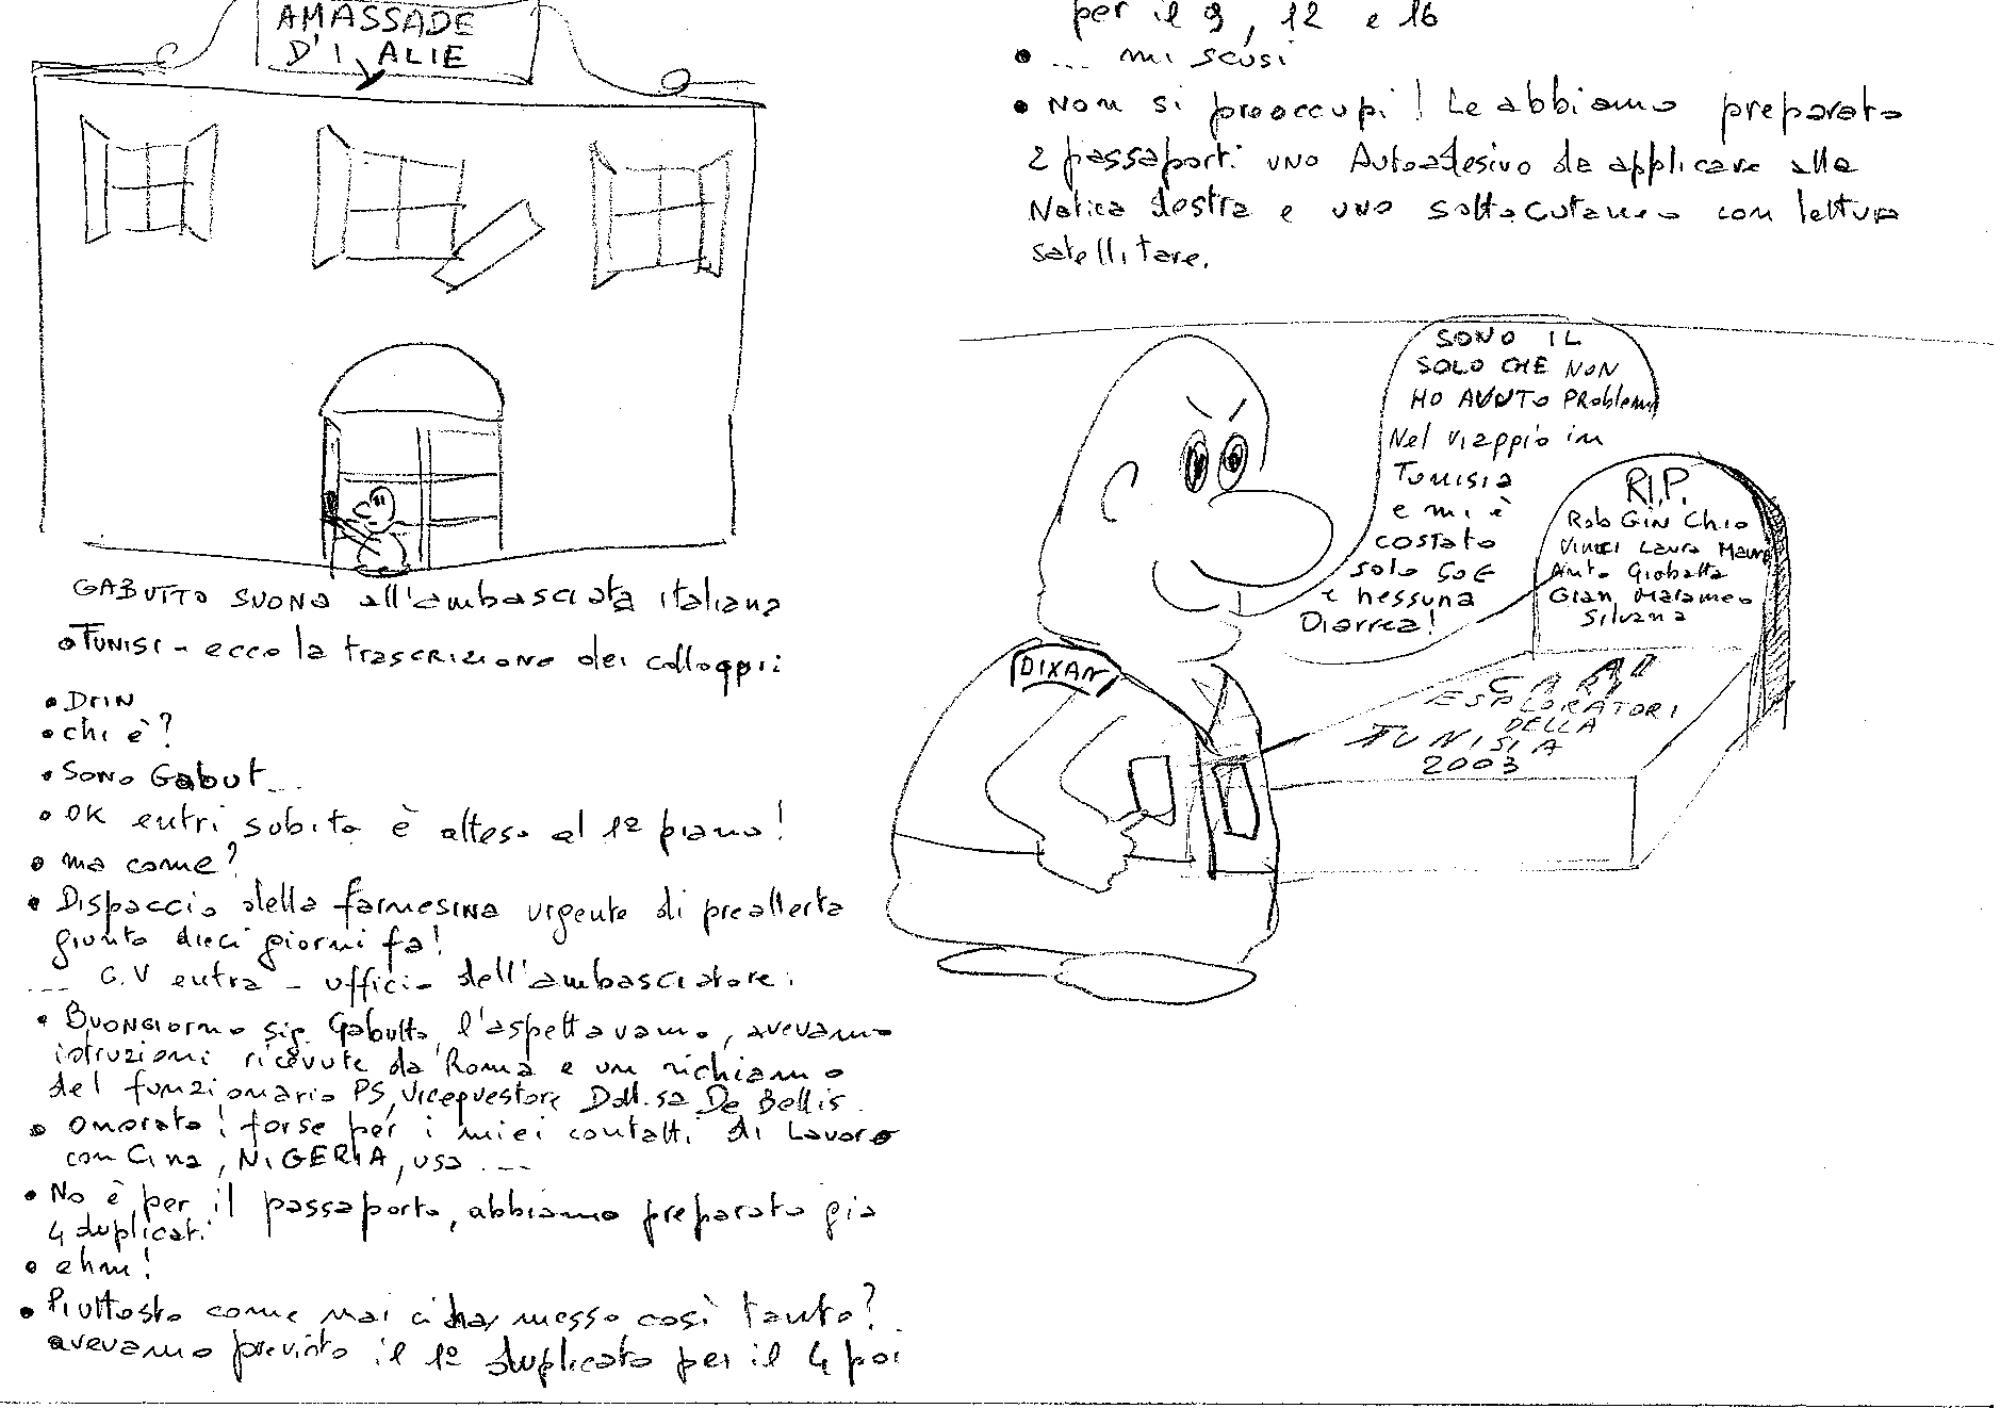 AMASSADE
D'I ALIE
GABUTTO SUONA all'ambasciata italiana
TUNISI - ecco la trascrizione dei colloqui:
• Drin
• chi è?
• Sono Gabut...
• OK entri subito è atteso al 1º piano!
• ma come?
• Dispaccio della farnesina urgente di preallerta
giunto dieci giorni fa!
... G.V entra - ufficio dell'ambasciatore:
• Buongiorno sig. Gabutto, l'aspettavamo, avevamo
istruzioni ricevute da Roma e un richiamo
del funzionario PS, Vicequestore Dott.sa De Bellis.
• onorato! forse per i miei contatti di Lavoro
con Cina, NIGERIA, usa ....
• No è per il passaporto, abbiamo preparato gia
4 duplicati
• ehm!
• Piuttosto come mai ci ha messo così tanto?
avevamo previsto il 1º duplicato per il 4 poi
per il 9, 12 e 16
• ... mi scusi
• Non si preoccupi! Le abbiamo preparato
2 passaporti uno Autoadesivo da applicare alla
Natica destra e uno sottocutaneo con lettura
satellitare.
SONO IL
SOLO CHE NON
HO AVUTO Problemi
Nel viaggio in
Tunisia
e mi è
costato
solo 50€
e nessuna
Diarrea!
R.I.P.
Rob Gin Chio
Vinici Laura Mauro
Anto Giobatta
Gian Marameo
Silvana
CARI
ESPLORATORI
DELLA
TUNISIA
2003
DIXAN